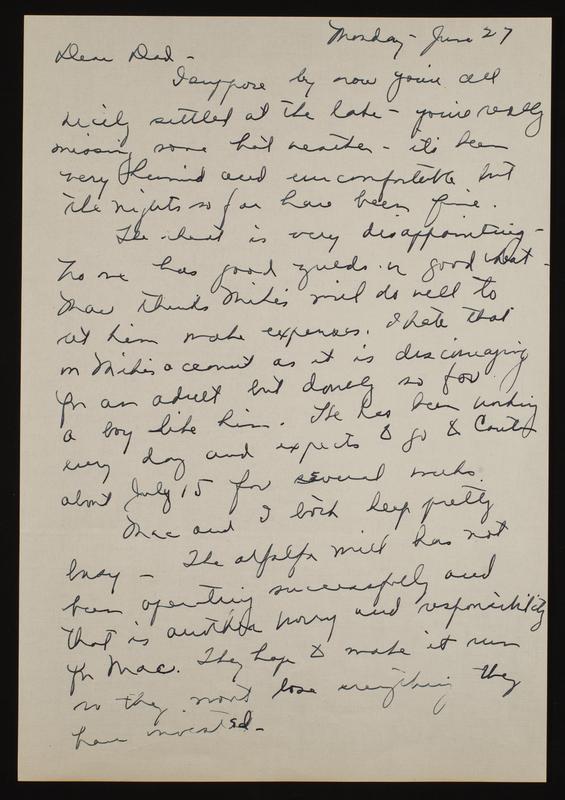 Monday - June 27
Dear Dad -
I suppose by now you're all
nicely settled at the lake - you're really
missing some hot weather - it's been
very humid and uncomfortable but
the nights so far have been fine.
The wheat is very disappointing -
no one has good yields or good wheat -
Mac thinks Mike's will do well to
let him make expenses. I hate that
on Mike's account as it is discouraging
for an adult but doubly so for
a boy like him. He has been working
every day and expects to go to
about July 15 for several weeks.
Mac and I both keep pretty
busy - The alfalfa mill has not
been operating successfully and
that is another worry and responsibility
for Mac. They hope to make it run
so they won't lose everything they
have invested -